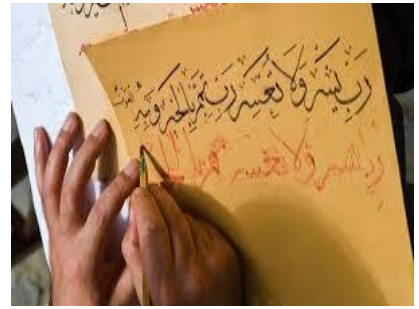 رب يسر ولا تعسر رب تمم بالخير وبه
رب يسر ولا تعسر تمم